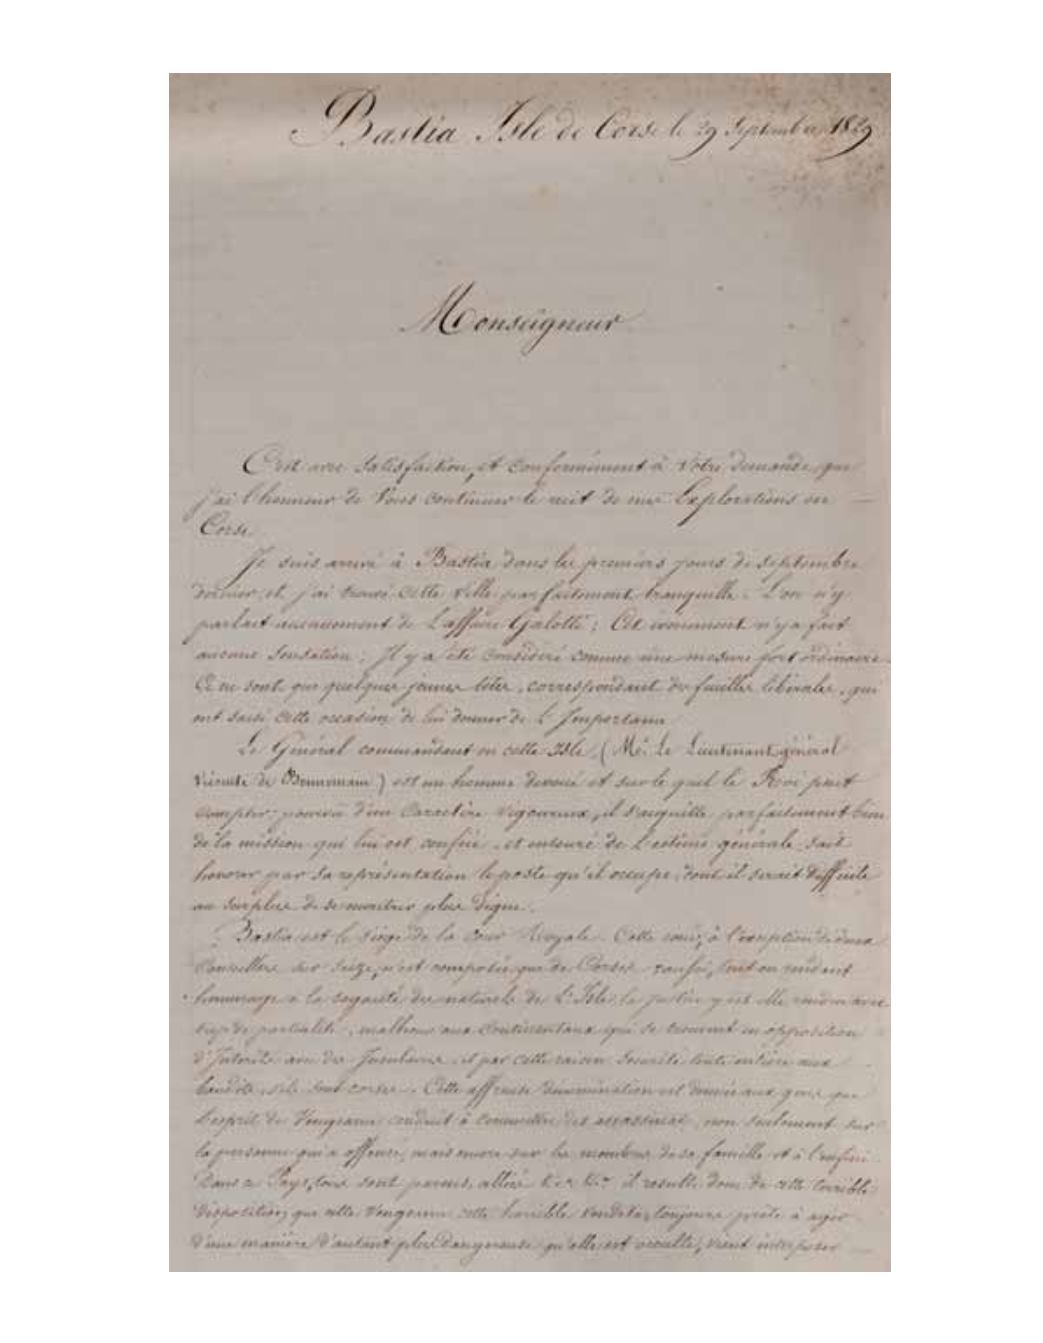 Bastia Isle de Corse le 29 Septembre 1829
Monseigneur
C'est avec satisfaction, et conformément à votre demande, que
j'ai l'honneur de Vous continuer le récit de mes Explorations en
Corse.
Je suis arrivé à Bastia dans les premiers jours de septembre
dernier, et j'ai trouvé cette Ville parfaitement tranquille. L'on n'y
parlait aucunement de L'affaire Galotti; Cet n'y a fait
aucune sensation; Il y a été considéré comme une mesure fort ordinaire.
Ce ne sont que quelques jeunes têtes, correspondant des feuilles libérales, qui
ont saisi cette occasion de lui donner de L'Importance
Le Général commandant en cette Isle, (Mr. Le Lieutenant général
Vicomte de ) est un homme dévoué et sur le quel le Roi peut
compter; pourvu d'un Caractère vigoureux, il s'acquitte parfaitement bien
de la mission qui lui est confiée, et entouré de L'estime générale, sait
honorer par sa représentation le poste qu'il occupe, dont il serait difficile
au surplus de se montrer plus digne.
Bastia est le siège de la cour Royale. Cette cour, à l'exception de deux
Conseillers sur seize, n'est composée que de Corses aussi, tout en rendant
hommage à la sagacité des naturels de L'Isle, la justice y est elle rendue avec
trop de partialité, malheur aux Continentaux qui se trouvent en opposition
d'Intérêts avec des Insulaires, et par cette raison sécurité toute entière aux
bandits, s'ils sont corses. Cette affreuse dénomination est donnée aux gens que
l'esprit de Vengeance conduit à commettre des assassinats, non seulement sur
la personne qui a offensé, mais encore sur les membres de sa famille et à l'infini.
Dans ce Pays, tous sont parens, alliés &ca &ca il résulte donc de cette terrible
disposition, que cette Vengeance cette horrible Vendetta, toujours prête à agir
d'une manière d'autant plus dangereuse qu'elle est occulte, vient interposer